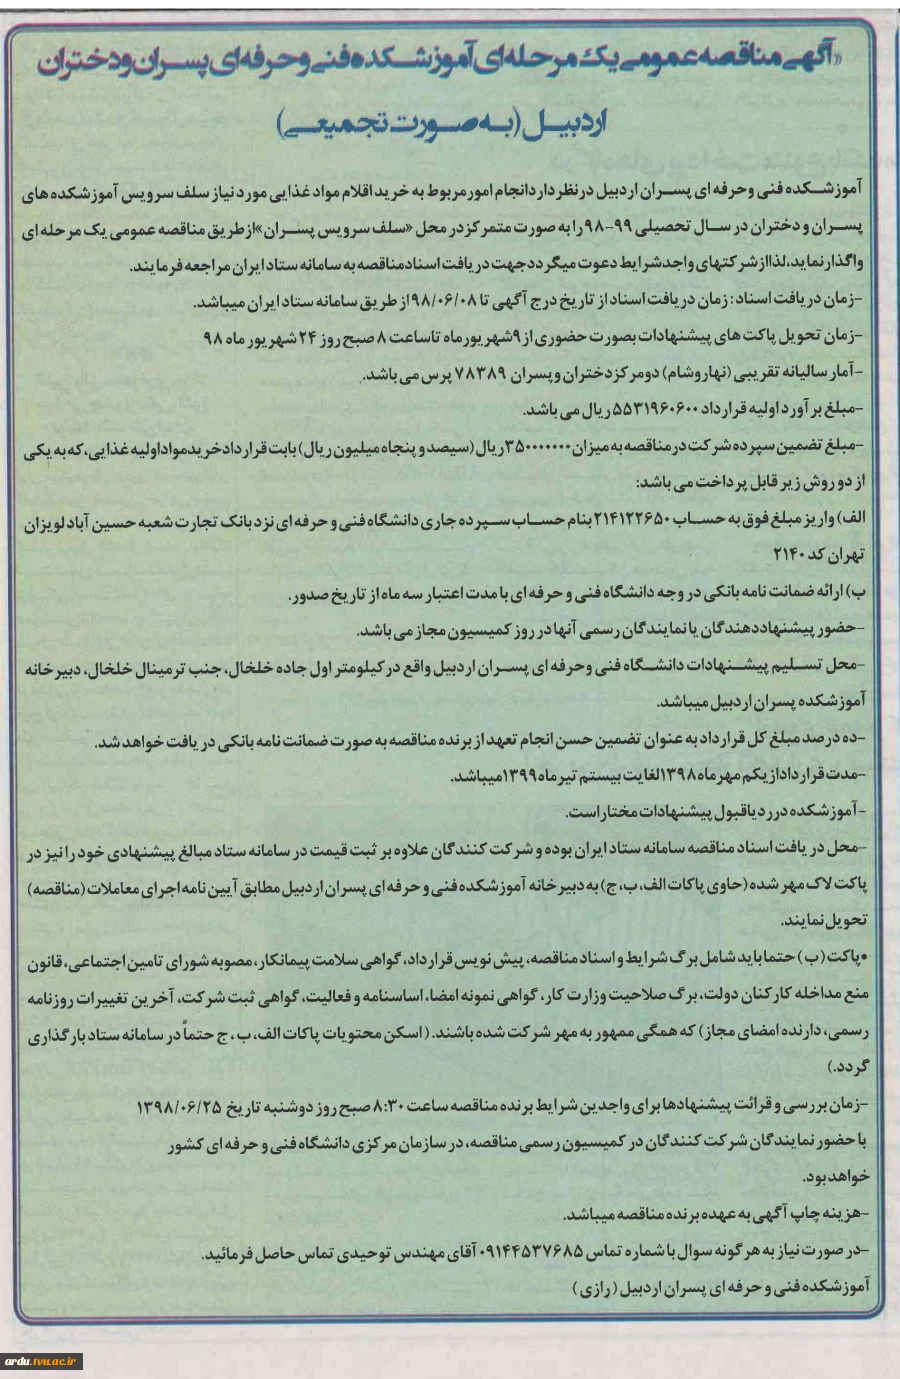 «آگهی مناقصه عمومی یک مرحله ای آموزشکده فنی و حرفه ای پسران و دختران
اردبیل (به صورت تجمیعی)
آموزشکده فنی وحرفه ای پسران اردبیل درنظر دارد انجام امور مربوط به خرید اقلام مواد غذایی مورد نیاز سلف سرویس آموزشکده های
پسران و دختران در سال تحصیلی ۹۹-۹۸ را به صورت متمرکز در محل «سلف سرویس پسران» از طریق مناقصه عمومی یک مرحله ای
واگذار نماید، لذا از شرکتهای واجد شرایط دعوت میگردد جهت دریافت اسناد مناقصه به سامانه ستاد ایران مراجعه فرمایند.
-زمان دریافت اسناد: زمان دریافت اسناد از تاریخ درج آگهی تا ۹۸/۰۶/۰۸ از طریق سامانه ستاد ایران میباشد.
-زمان تحویل پاکت های پیشنهادات بصورت حضوری از ۹ شهریور ماه تا ساعت ۸ صبح روز ۲۴ شهریور ماه ۹۸
-آمار سالیانه تقریبی (نهار و شام) دو مرکز دختران و پسران ۷۸۳۸۹ پرس می باشد.
-مبلغ برآورد اولیه قرارداد ۵۵۳۱۹۶۰۶۰۰ ریال می باشد.
-مبلغ تضمین سپرده شرکت در مناقصه به میزان ۳۵۰۰۰۰۰۰۰ ریال (سیصد و پنجاه میلیون ریال) بابت قرارداد خرید مواد اولیه غذایی، که به یکی
از دو روش زیر قابل پرداخت می باشد:
الف) واریز مبلغ فوق به حساب ۲۱۴۱۲۲۶۵۰ بنام حساب سپرده جاری دانشگاه فنی و حرفه ای نزد بانک تجارت شعبه حسین آباد لویزان
تهران کد ۲۱۴۰
ب) ارائه ضمانت نامه بانکی در وجه دانشگاه فنی و حرفه ای با مدت اعتبار سه ماه از تاریخ صدور.
-حضور پیشنهاددهندگان یا نمایندگان رسمی آنها در روز کمیسیون مجاز می باشد.
-محل تسلیم پیشنهادات دانشگاه فنی وحرفه ای پسران اردبیل واقع در کیلومتر اول جاده خلخال، جنب ترمینال خلخال، دبیرخانه
آموزشکده پسران اردبیل میباشد.
-ده درصد مبلغ کل قرارداد به عنوان تضمین حسن انجام تعهد از برنده مناقصه به صورت ضمانت نامه بانکی دریافت خواهد شد.
-مدت قرارداد از یکم مهر ماه ۱۳۹۸ لغایت بیستم تیر ماه ۱۳۹۹ میباشد.
-آموزشکده در رد یا قبول پیشنهادات مختار است.
-محل دریافت اسناد مناقصه سامانه ستاد ایران بوده و شرکت کنندگان علاوه بر ثبت قیمت در سامانه ستاد مبالغ پیشنهادی خود را نیز در
پاکت لاک مهر شده (حاوی پاکات الف، ب، ج) به دبیرخانه آموزشکده فنی و حرفه ای پسران اردبیل مطابق آیین نامه اجرای معاملات (مناقصه)
تحویل نمایند.
•پاکت (ب) حتما باید شامل برگ شرایط و اسناد مناقصه، پیش نویس قرارداد، گواهی سلامت پیمانکار، مصوبه شورای تامین اجتماعی، قانون
منع مداخله کارکنان دولت، برگ صلاحیت وزارت کار، گواهی نمونه امضا، اساسنامه و فعالیت، گواهی ثبت شرکت، آخرین تغییرات روزنامه
رسمی، دارنده امضای مجاز) که همگی ممهور به مهر شرکت شده باشند. (اسکن محتویات پاکات الف، ب، ج حتماً در سامانه ستاد بارگذاری
گردد.)
-زمان بررسی و قرائت پیشنهادها برای واجدین شرایط برنده مناقصه ساعت ۸:۳۰ صبح روز دوشنبه تاریخ ۱۳۹۸/۰۶/۲۵
با حضور نمایندگان شرکت کنندگان در کمیسیون رسمی مناقصه، در سازمان مرکزی دانشگاه فنی و حرفه ای کشور
خواهد بود.
-هزینه چاپ آگهی به عهده برنده مناقصه میباشد.
-در صورت نیاز به هرگونه سوال با شماره تماس ۰۹۱۴۴۵۳۷۶۸۵ آقای مهندس توحیدی تماس حاصل فرمائید.
آموزشکده فنی و حرفه ای پسران اردبیل (رازی)
ardu.tvu.ac.ir